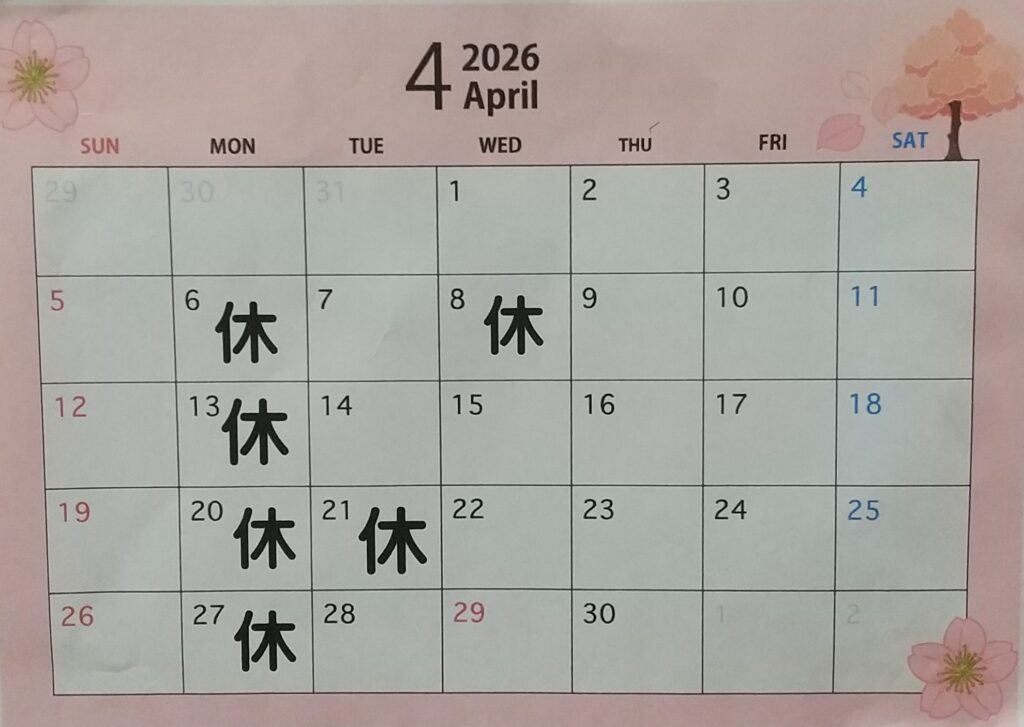 4 2026
April
SUN MON TUE WED THU FRI SAT
29 30 31 1 2 3 4
5 6 休 7 8 休 9 10 11
12 13 休 14 15 16 17 18
19 20 休 21 休 22 23 24 25
26 27 休 28 29 30 1 2